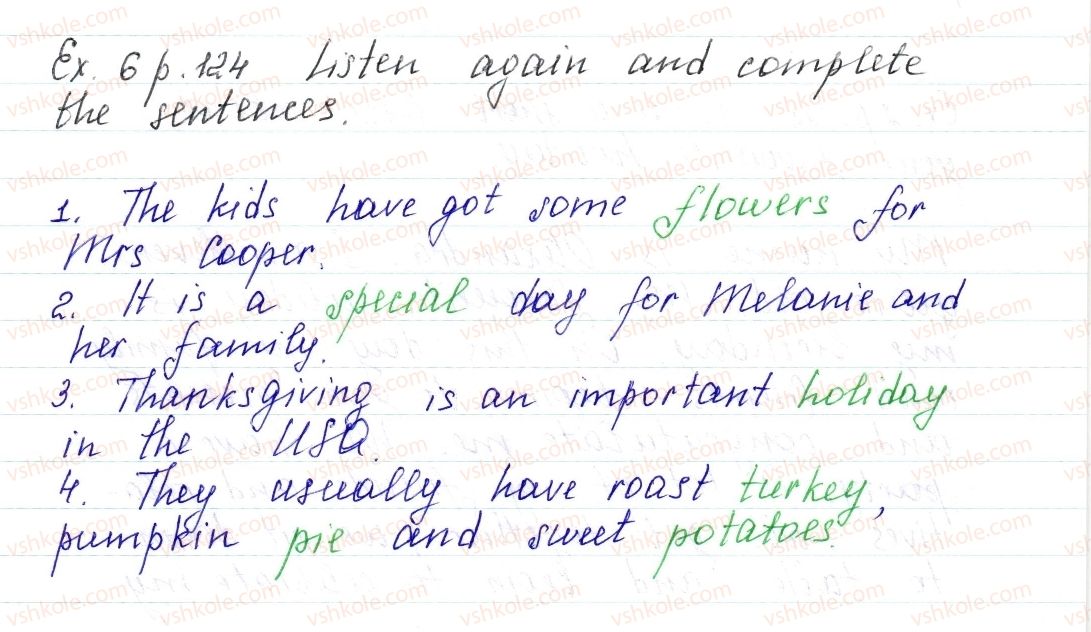 Ex. 6 p. 124 Listen again and complete
the sentences.
1. The kids have got some flowers for
Mrs Cooper.
2. It is a special day for Melanie and
her family.
3. Thanksgiving is an important holiday
in the USA.
4. They usually have roast turkey,
pumpkin pie and sweet potatoes.
vshkole.com